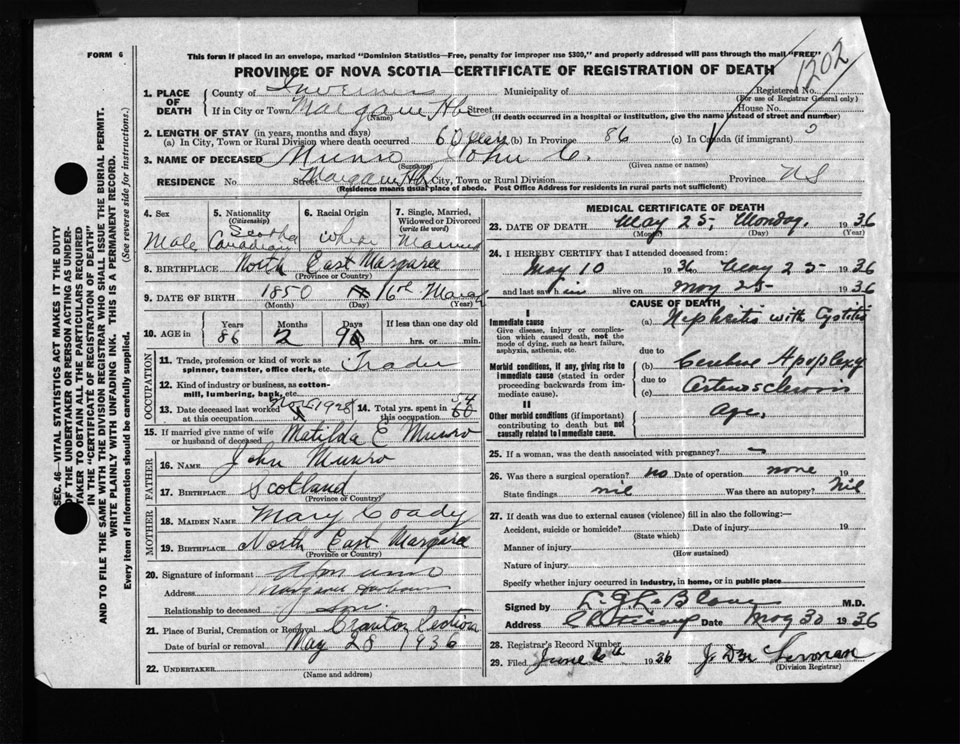 FORM 6
This form if placed in an envelope, marked "Dominion Statistics—Free, penalty for improper use $300," and properly addressed will pass through the mail "FREE"
1202
PROVINCE OF NOVA SCOTIA—CERTIFICATE OF REGISTRATION OF DEATH
1. PLACE OF DEATH
County of Inverness Municipality of Registered No.
(For use of Registrar General only)
If in City or Town Margaree Hbr Street House No.
(Name) (If death occurred in a hospital or institution, give the name instead of street and number)
2. LENGTH OF STAY (in years, months and days)
(a) In City, Town or Rural Division where death occurred 60 years (b) In Province 86 (c) In Canada (if immigrant)
3. NAME OF DECEASED Munro John C.
(Surname) (Given name or names)
RESIDENCE No. Street Margaree Hbr City, Town or Rural Division Province NS
(Residence means usual place of abode. Post Office Address for residents in rural parts not sufficient)
4. Sex
Male
5. Nationality
(Citizenship)
Scotch
Canadian
6. Racial Origin
White
7. Single, Married, Widowed or Divorced
(write the word)
Married
8. BIRTHPLACE North East Margaree
(Province or Country)
9. DATE OF BIRTH 1850 16th March
(Month) (Day) (Year)
10. AGE in
Years Months Days If less than one day old
86 2 9 hrs. or min.
OCCUPATION
11. Trade, profession or kind of work as spinner, teamster, office clerk, etc. Trader
12. Kind of industry or business, as cotton-mill, lumbering, bank, etc.
13. Date deceased last worked at this occupation 1928
14. Total yrs. spent in this occupation 60
15. If married give name of wife or husband of deceased Matilda E Munro
FATHER
16. NAME John Munro
17. BIRTHPLACE Scotland
(Province or Country)
MOTHER
18. MAIDEN NAME Mary Coady
19. BIRTHPLACE North East Margaree
(Province or Country)
20. Signature of informant
Address Margaree
Relationship to deceased Son
21. Place of Burial, Cremation or Removal Cranton Section
Date of burial or removal May 28 1936
22. UNDERTAKER
(Name and address)
MEDICAL CERTIFICATE OF DEATH
23. DATE OF DEATH May 25 Monday. 1936
(Month) (Day) (Year)
24. I HEREBY CERTIFY that I attended deceased from:
May 10 1936 to May 25 1936
and last saw him alive on May 25 1936
CAUSE OF DEATH
I
Immediate cause
Give disease, injury or complication which caused death, not the mode of dying, such as heart failure, asphyxia, asthenia, etc.
(a) Nephritis with Cystitis
due to
Morbid conditions, if any, giving rise to immediate cause (stated in order proceeding backwards from immediate cause).
(b) Cerebral Apoplexy
due to
(c) Arteriosclerosis
II
Other morbid conditions (if important) contributing to death but not causally related to immediate cause.
Age.
25. If a woman, was the death associated with pregnancy?
26. Was there a surgical operation? no Date of operation none 19
State findings nil Was there an autopsy? Nil
27. If death was due to external causes (violence) fill in also the following:—
Accident, suicide or homicide? Date of injury 19
(State which)
Manner of injury
(How sustained)
Nature of injury
Specify whether injury occurred in industry, in home, or in public place
Signed by M.D.
Address Cheticamp Date May 30 1936
28. Registrar's Record Number
29. Filed June 6th 1936
(Division Registrar)
SEC. 46—VITAL STATISTICS ACT MAKES IT THE DUTY OF THE UNDERTAKER OR PERSON ACTING AS UNDERTAKER TO OBTAIN ALL THE PARTICULARS REQUIRED IN THE "CERTIFICATE OF REGISTRATION OF DEATH"
AND TO FILE THE SAME WITH THE DIVISION REGISTRAR WHO SHALL ISSUE THE BURIAL PERMIT.
WRITE PLAINLY WITH UNFADING INK. THIS IS A PERMANENT RECORD.
Every item of Information should be carefully supplied. (See reverse side for instructions.)